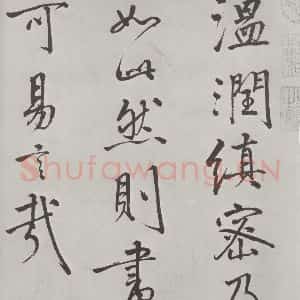 温潤縝密乃
如此然則書
可易言哉
Shufawang.CN